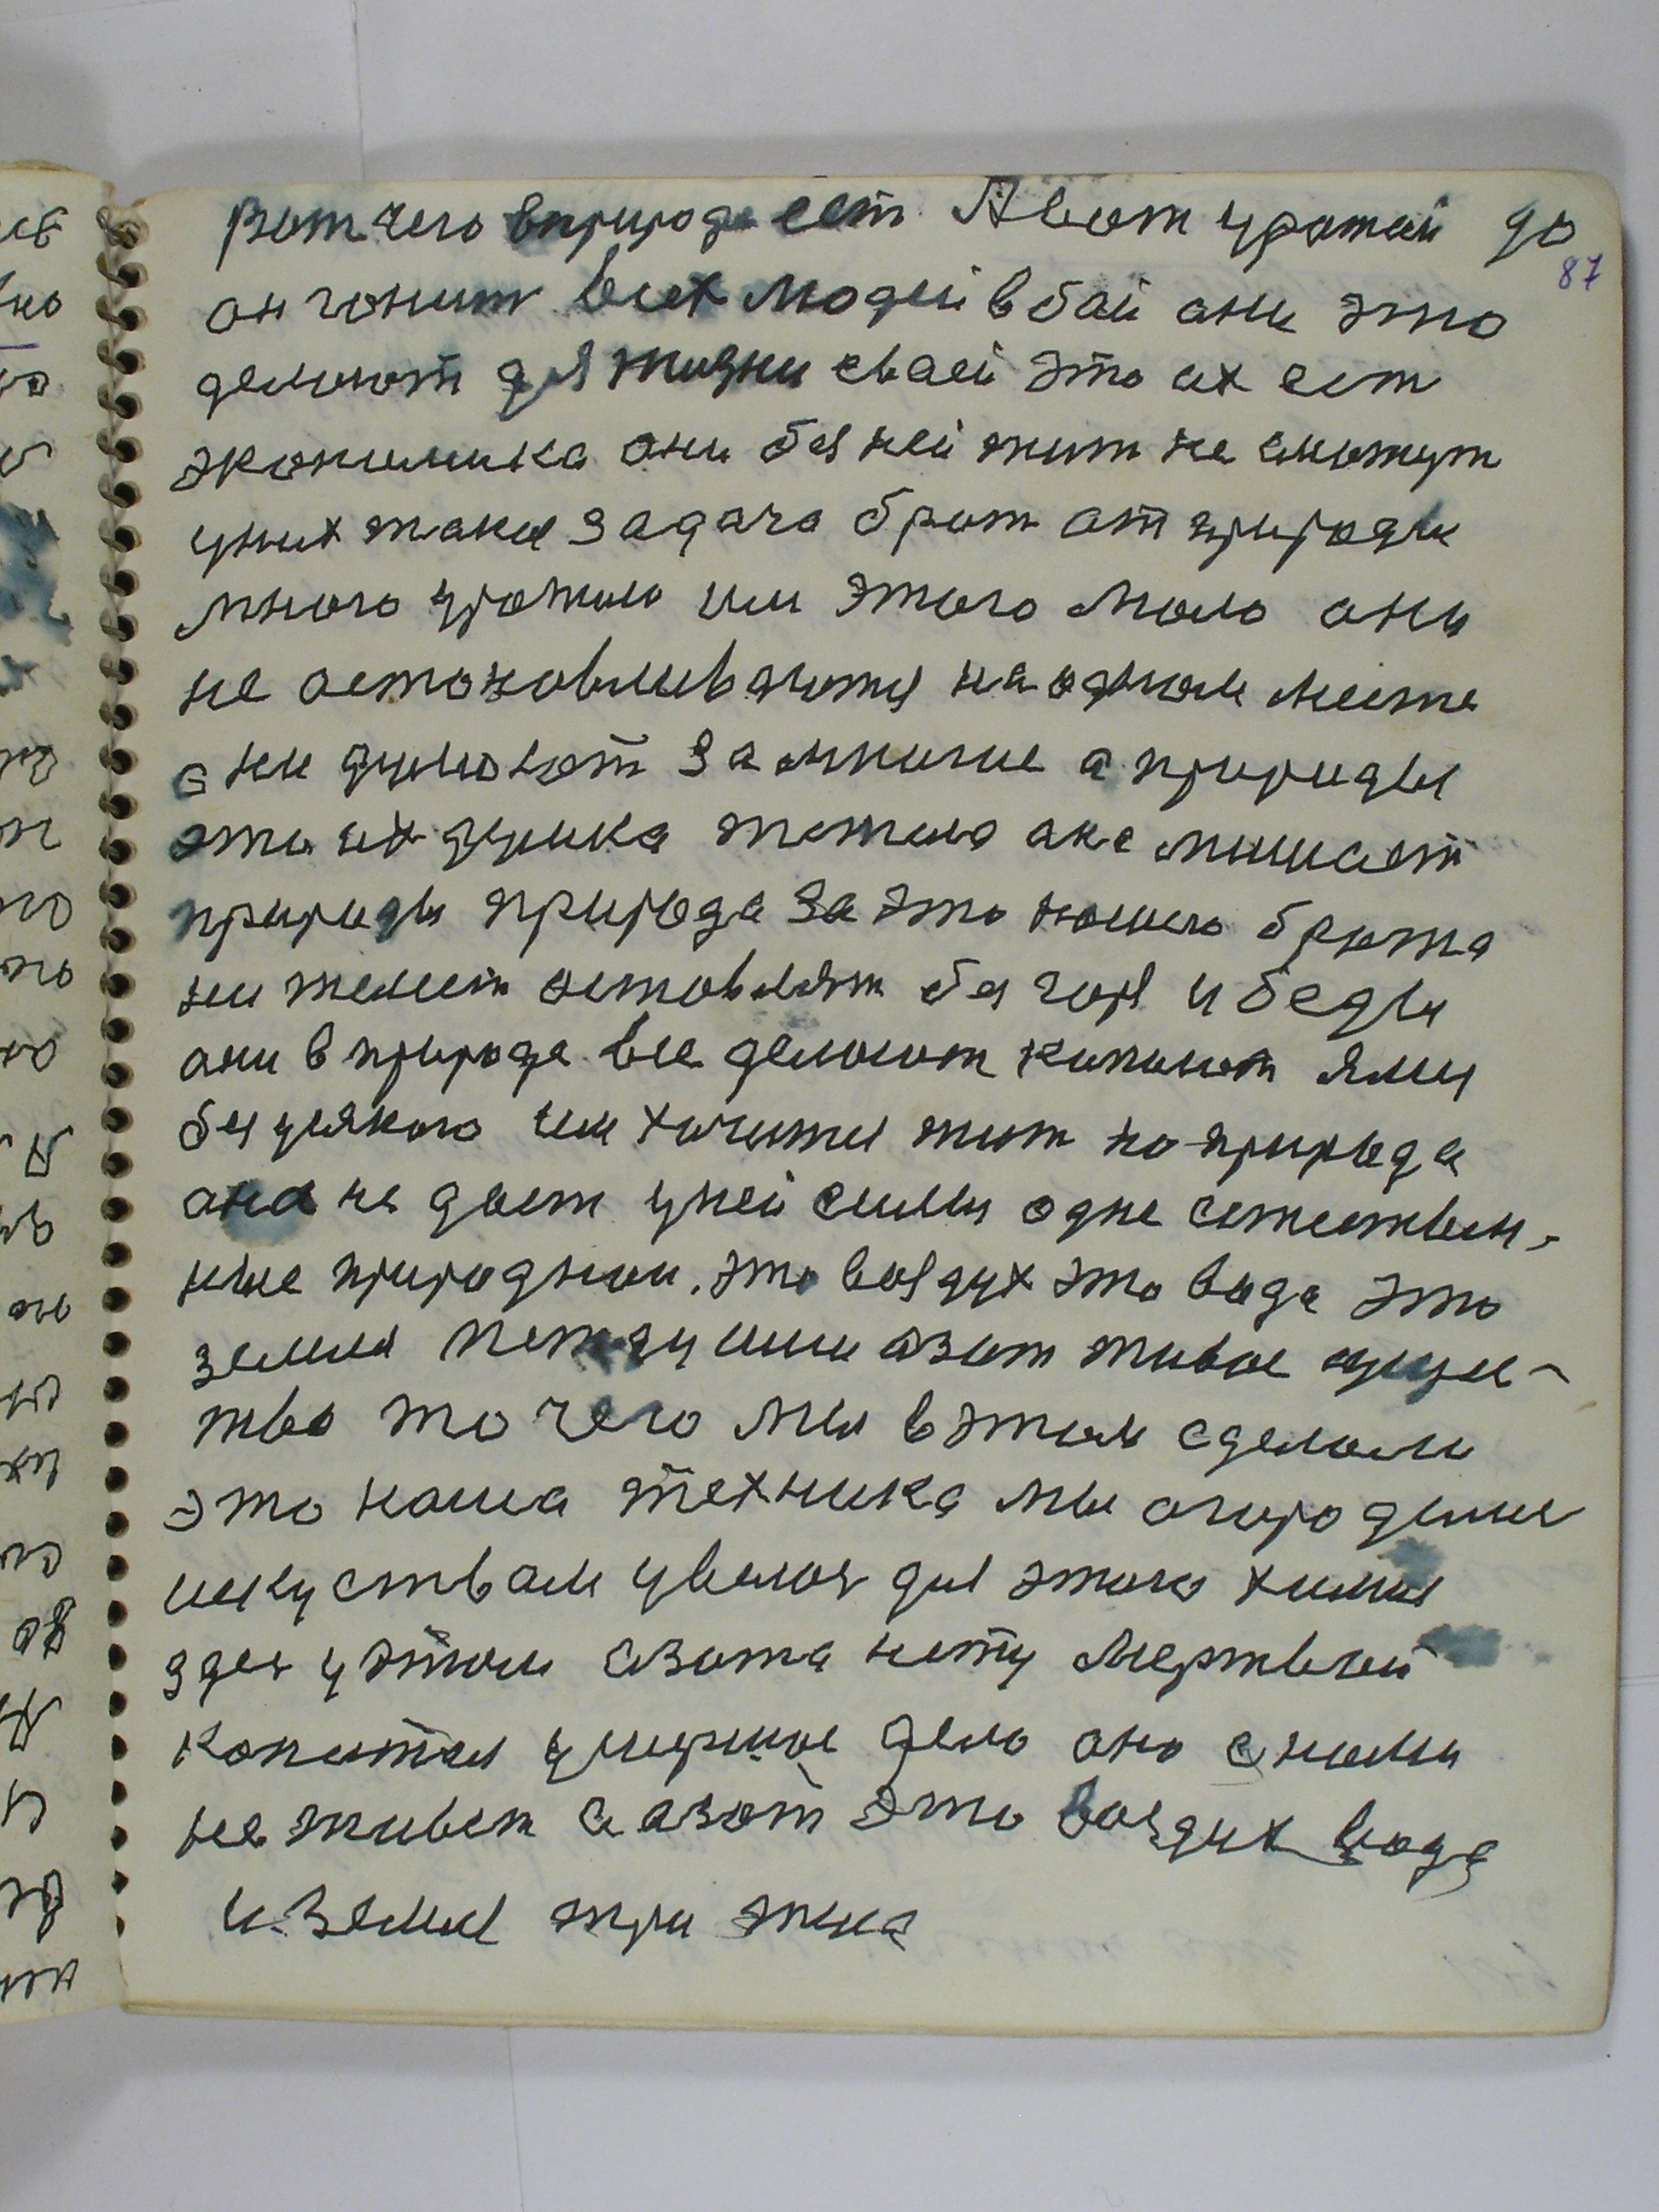 вот чего в природе ест. А вот урожай до
87
он гонит всех людей в бой они это
делают для жизни сваей это их ест
экономика они без ней жит не сможут
у них така задача брат от природы
много урожаю им этого мало они
не астоновливаются на одном месте
они думают за многие а природы
эта их думка тяжело
природы природа за это нашего брата
ни желает оставлят без горя и беды
они в природе все делают капают ямы
без усякого им хочится жит но природа
она не дает у ней силы одне естествен-
ные природнаи. это воздух это вода это
земля между ими азот живое сущес-
тво то чего мы в этом сделали
это наша техника мы огородилис
искуством увелос для этого химия
здес у этом азота нету мертвый
капитал умершое дело оно с нами
не живет а азот это воздух вода
и земля три тела